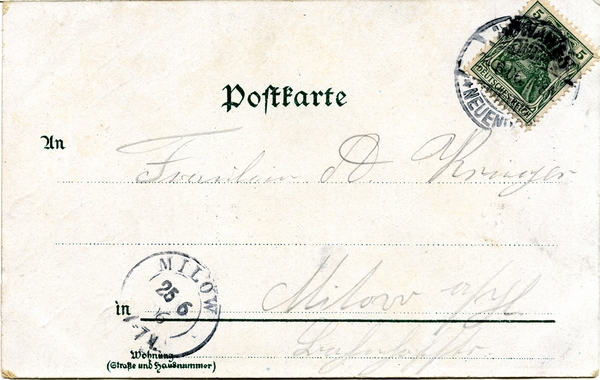 5 5
DEUTSCHES REICH
Postkarte
An
Fräulein A. Krüger
MILOW
25 6
7-8 N.
in
Milow a/H
Wohnung
(Straße und Hausnummer)